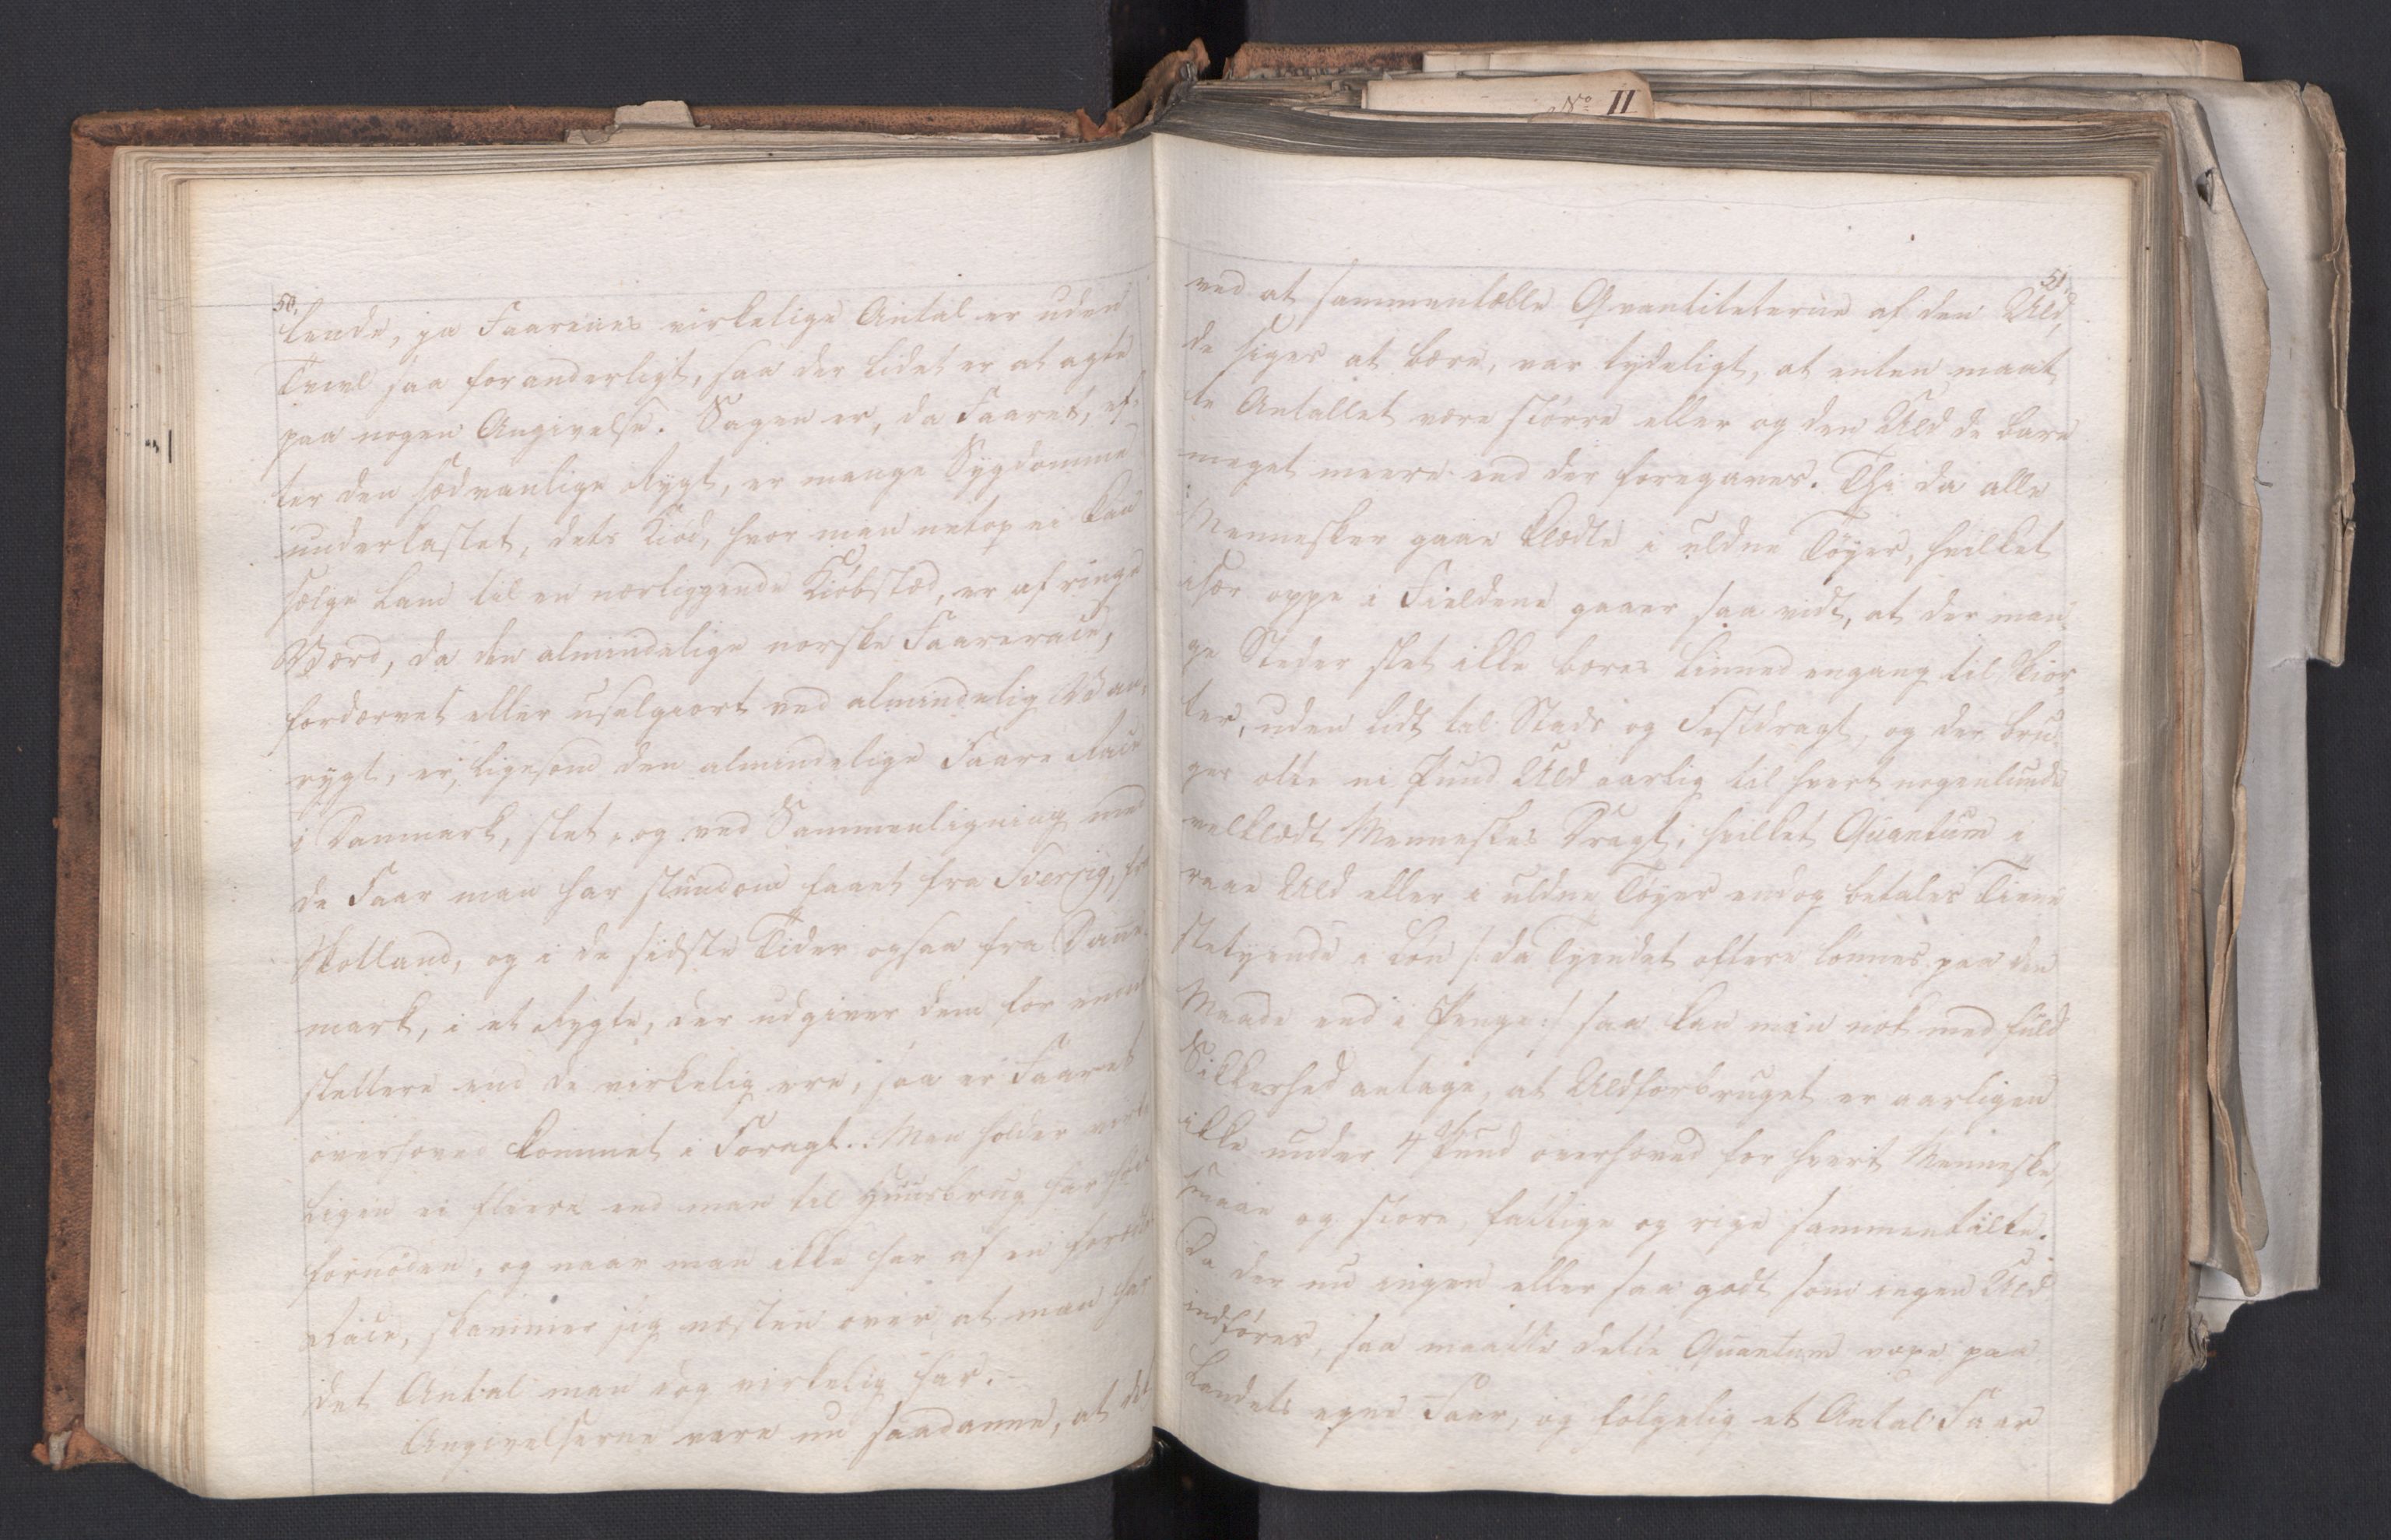 No II
50.
kende, ja Faarenes virkelige Antal er uden
Tvivl saa foranderligt, saa der lidet er at agte
paa nogen Angivelse. Sagen er, da Faaret, ef-
ter den sædvanlige Rygt, er mange Sygdomme
underkastet, dets Kiød, hvor man netop ei kan
sælge Lam til en nærliggende Kiøbstæd, er af ringe
Værd, da den almindelige norske Faarerace,
fordærvet eller uselgiort ved almindelig Van-
rygt, er, ligesom den almindelige Faare Race
i Danmark, slet, og ved Sammenligning med
de Faar man har stundom faaet fra Sverrig, fra
Skotland, og i de sidste Tider ogsaa fra Dane-
mark, i et Rygte, der udgiver dem for endnu
slettere end de virkelig ere, saa er Faaret
overhoved kommet i Foragt. Man holder
ligen ei fleere end man til Huusbrug har høist
fornøden, og naar man ikke har af en
Race, skammer sig næsten over, at man har
det Antal man dog virkelig har.
Angivelserne vare nu saadanne, at det
51.
ved at sammentælle Qvantiteterne af den Uld,
de siges at bære, var tydeligt, at enten maat
te Antallet være større eller og den Uld de bare
meget meere end der foregaves. Thi da alle
Mennesker gaae klædte i uldne Tøyer, hvilket
især oppe i Fieldene gaaer saa vidt, at der man
ge Steder slet ikke bæres Linned engang til Skior-
ter, uden lidt til Stads og Festdragt, og der bru-
ges otte ni Pund Uld aarlig til hvert nogenlunde
velklædt Menneskes Dragt, hvilket Quantum i
raae Uld eller i uldne Tøyer endog betales Tiene
stetyende i Løn /: da Tyendet oftere lønnes paa den
Maade end i Penge :/ saa kan man nok med fuld
Sikkerhed antage, at Uldforbruget er aarligen
ikke under 4 Pund overhoved for hvert Menneske,
smaae og store, fattige og rige sammentalte.
Da der nu ingen eller saa godt som ingen Uld
indføres, saa maatte dette Quantum være paa
Landets egne Faar, og følgelig et Antal Faar